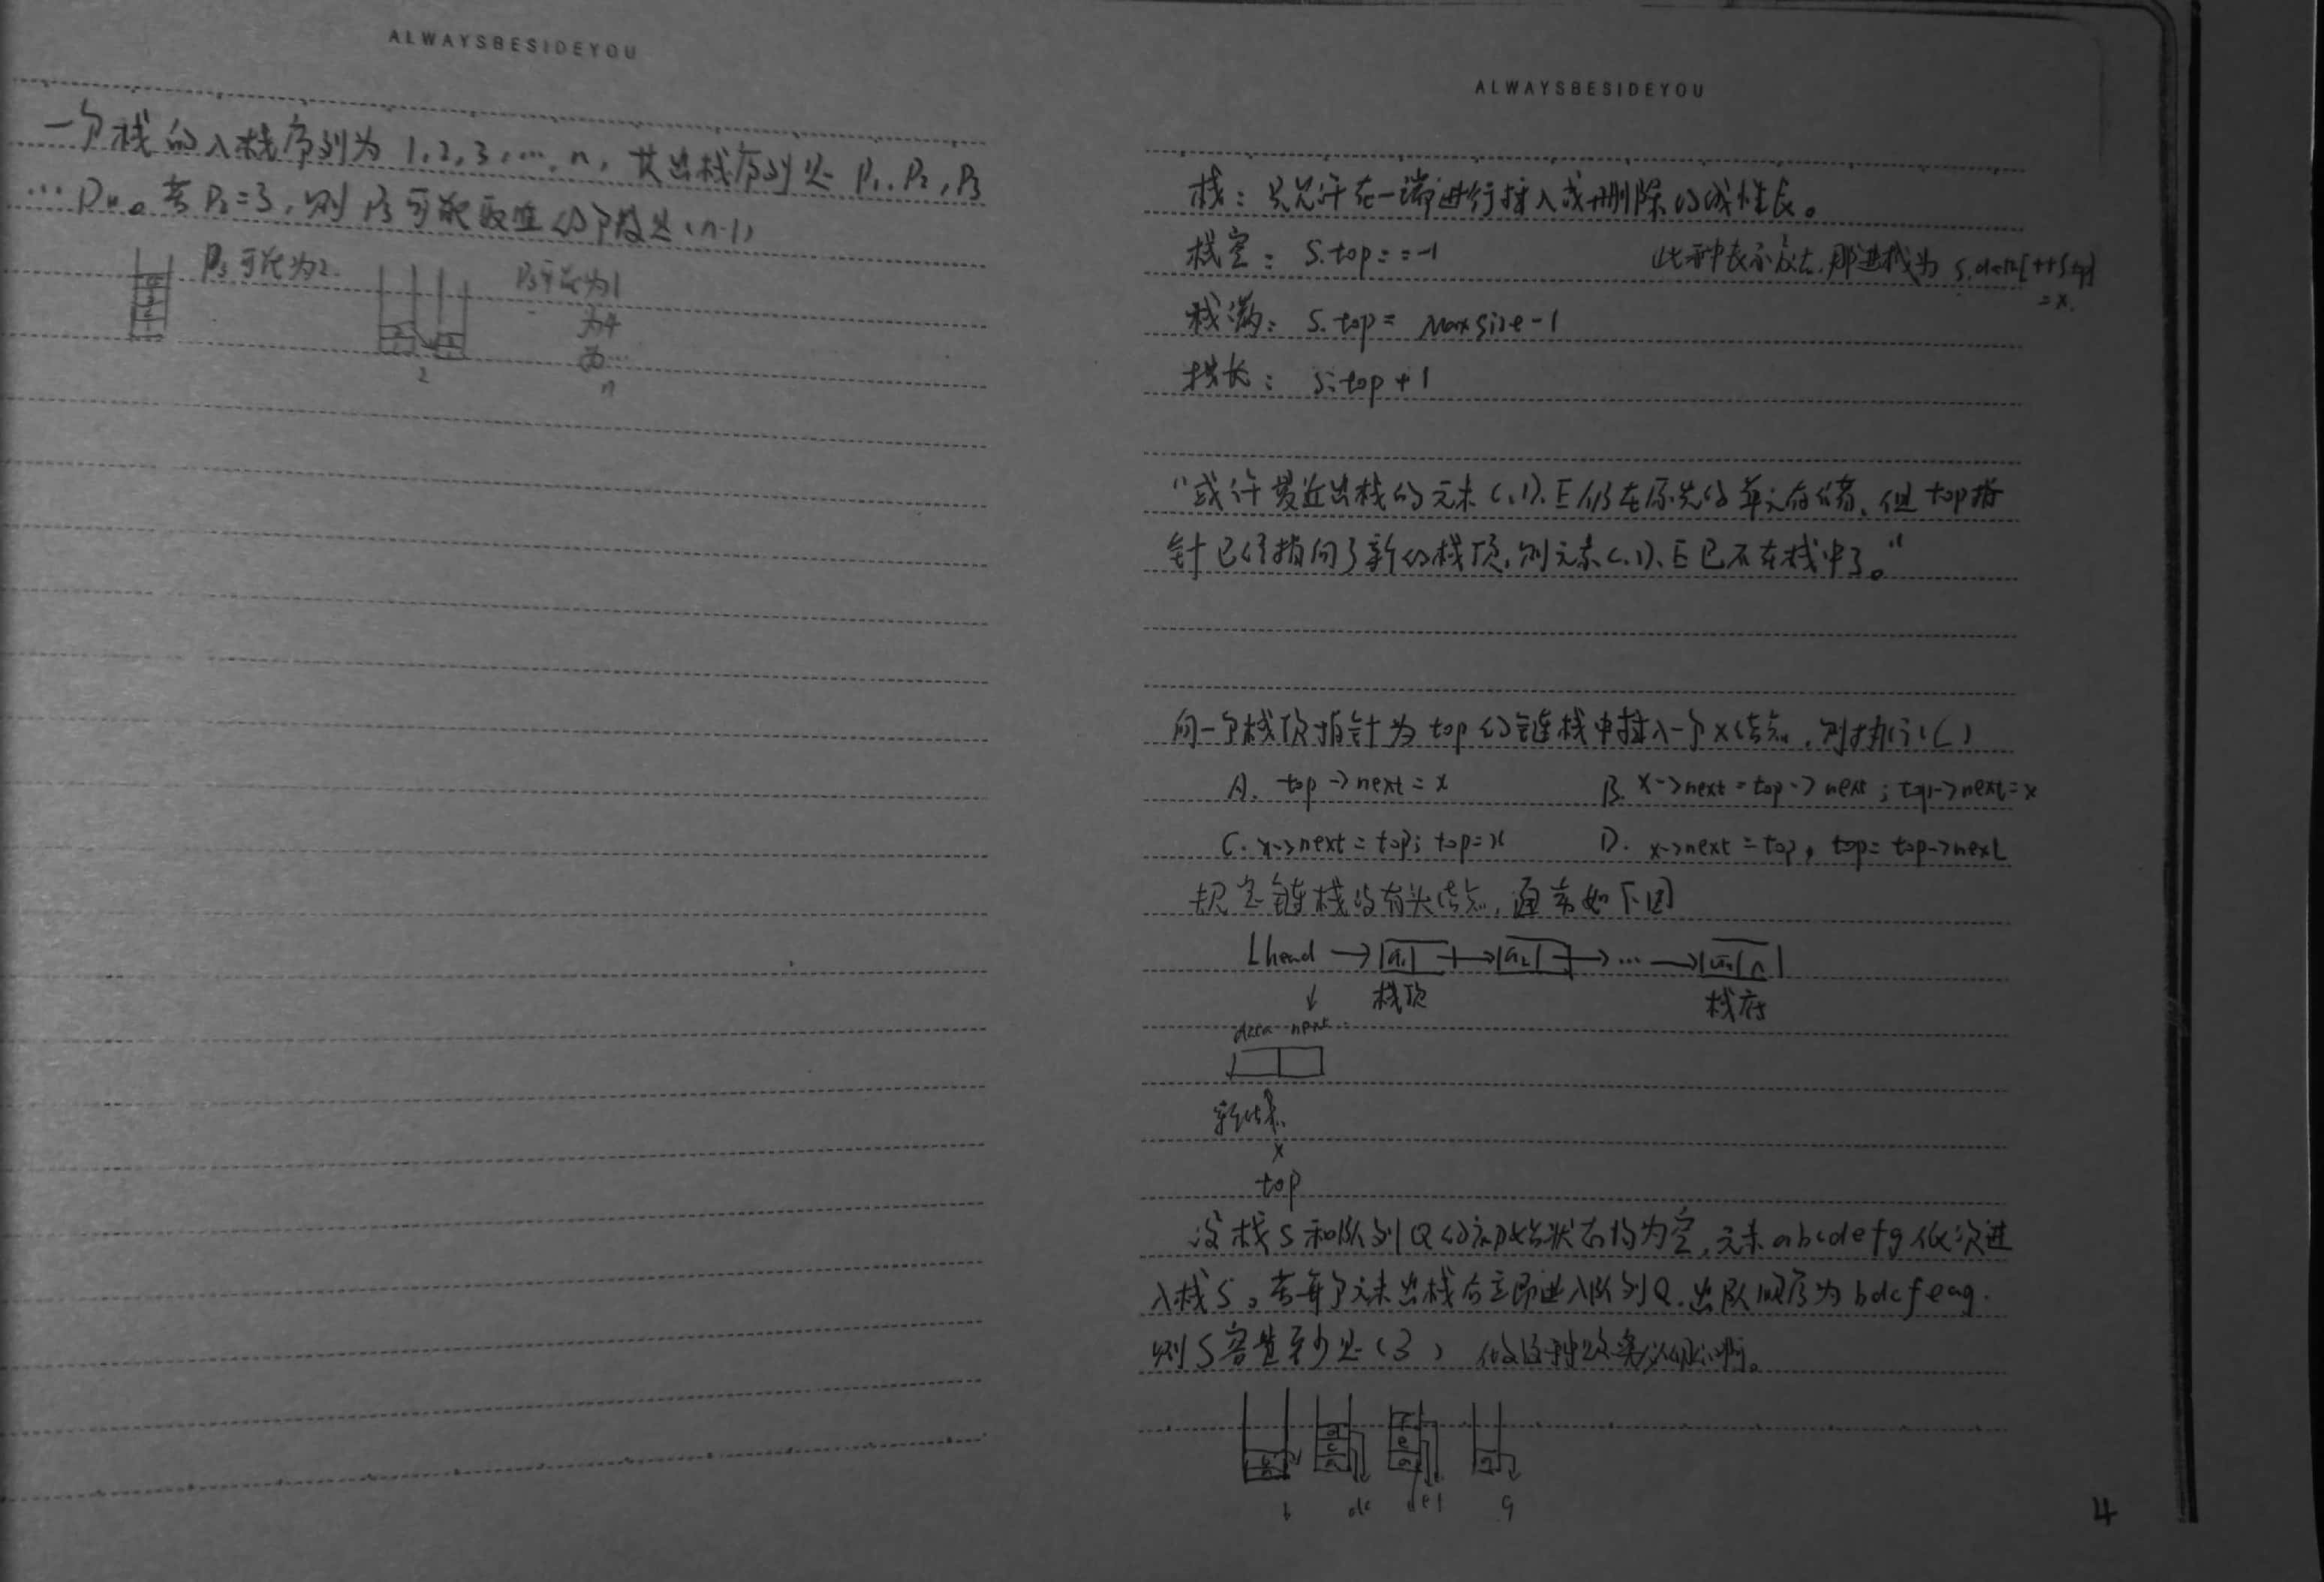 ALWAYSBESIDEYOU
一个栈的入栈序列为 1,2,3,…,n, 其出栈序列是 P₁,P₂,P₃
…Pn。若P₂=3,则P₃可能取值的个数是(n-1)
P₃可能为2
P₃可能为1
为4
为…
n
2
ALWAYSBESIDEYOU
栈:只允许在一端进行插入或删除的线性表。
栈空: S.top==-1 此种表示方法,那进栈为 S.data[++S.top]
=x.
栈满: S.top= Maxsize-1
栈长: S.top+1
"或许最近出栈的元素C、D、E仍在原先的单元存储,但top指
针已经指向了新的栈顶,则元素C、D、E已不在栈中了。"
向一个栈顶指针为top的链栈中插入一个x结点,则执行( )
A. top->next=x B. x->next=top->next;top->next=x
C. x->next=top;top=x D. x->next=top,top=top->next
规定链栈没有头结点,通常如下图
Lhead → a₁ → a₂ → … → aₙ ∧
栈顶 栈底
data next
新结点
x
top
设栈S和队列Q的初始状态均为空,元素abcdefg依次进
入栈S。若每个元素出栈后立即进入队列Q,出队顺序为bdcfeag.
则S容量至少是(3)
b dc g
4